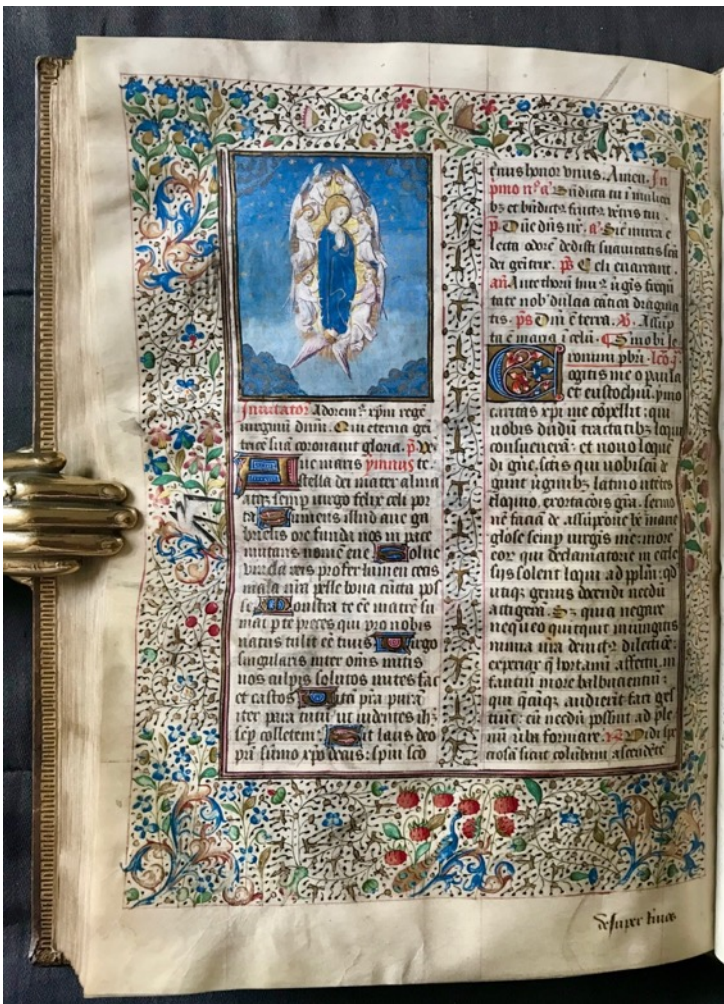 Invitator Adorem⁹ xp̄m regē
virginū dn̄m. Qui eterna gēi
tricē suā coronavit gloria. p̄. Ve
Ave maris ymnus ste
stella dei mater alma
atqꝫ semp virgo felix celi por
ta Sumens illud ave ga
brielis ore funda nos in pace
mutans nomē eve Solve
vincla reis profer lumen cecis
mala nr̄a pelle bona cūcta pos
ce Monstra te eē matrē su
mat p te preces qui pro nobis
natus tulit eē tuus Virgo
singularis inter om̄s mitis
nos culpis solutos mites fac
et castos Vitā pr̄a purā
iter para tutū ut videntes ih̄m
sēp colletem⁹ Sit laus deo
pr̄i sūmo xp̄o decus: spiri sc̄o
honor unus. Amen. In
pmo n° a᷎ Bn̄dicta tu ī mulieri
bꝫ et bn̄dict⁹ fruct⁹ vētris tui
p̄. Dn̄e dn̄s nr̄. a᷎ Sic mirra e
lecta odorē dedisti suavitatis scā
dei geīitrix. p̄s Celi enarrant.
an̄ Ante thorū hui⁹ ūgīs freqn̄
tate nob̄ dulcia cātica dragma
tis. p̄s Dn̄i ē terra. V. Assūp
ta ē maria ī celū.
ronimi pbr̄i. lc̄o
Cogitis me o paula
et eustochiū. ymo
caritas xp̄i me cōpellit: qui
vobis dudū tractatibꝫ loqui
consueverā: et novo loquē
di gn̄e, sc̄tis qui vobiscū de
gunt v̄ginibꝫ latino utētes
eloquio, exortacōis gr̄a. sermo
nē faciā de assūpcōne bē marie
gl̄ose semp virgīs me: more
eor⁹ qui declamatorie in eccle
siis solent loqui ad pplm̄: qd̄
utiqꝫ genus docendi necdū
attigerā. Sꝫ quia negare
nequeo quitquit iniungitis
nimia vr̄a devict⁹ dilectiōe:
experiar q̄ hortamī affectu, in
fantiū more balbucientiū:
qui q̄cūqꝫ audierīt faci ges
tiūt: cū necdū possint ad ple
nū v̄ba formare. Vidi spe
ciosā sicut columbam ascendētē
desuper rivos